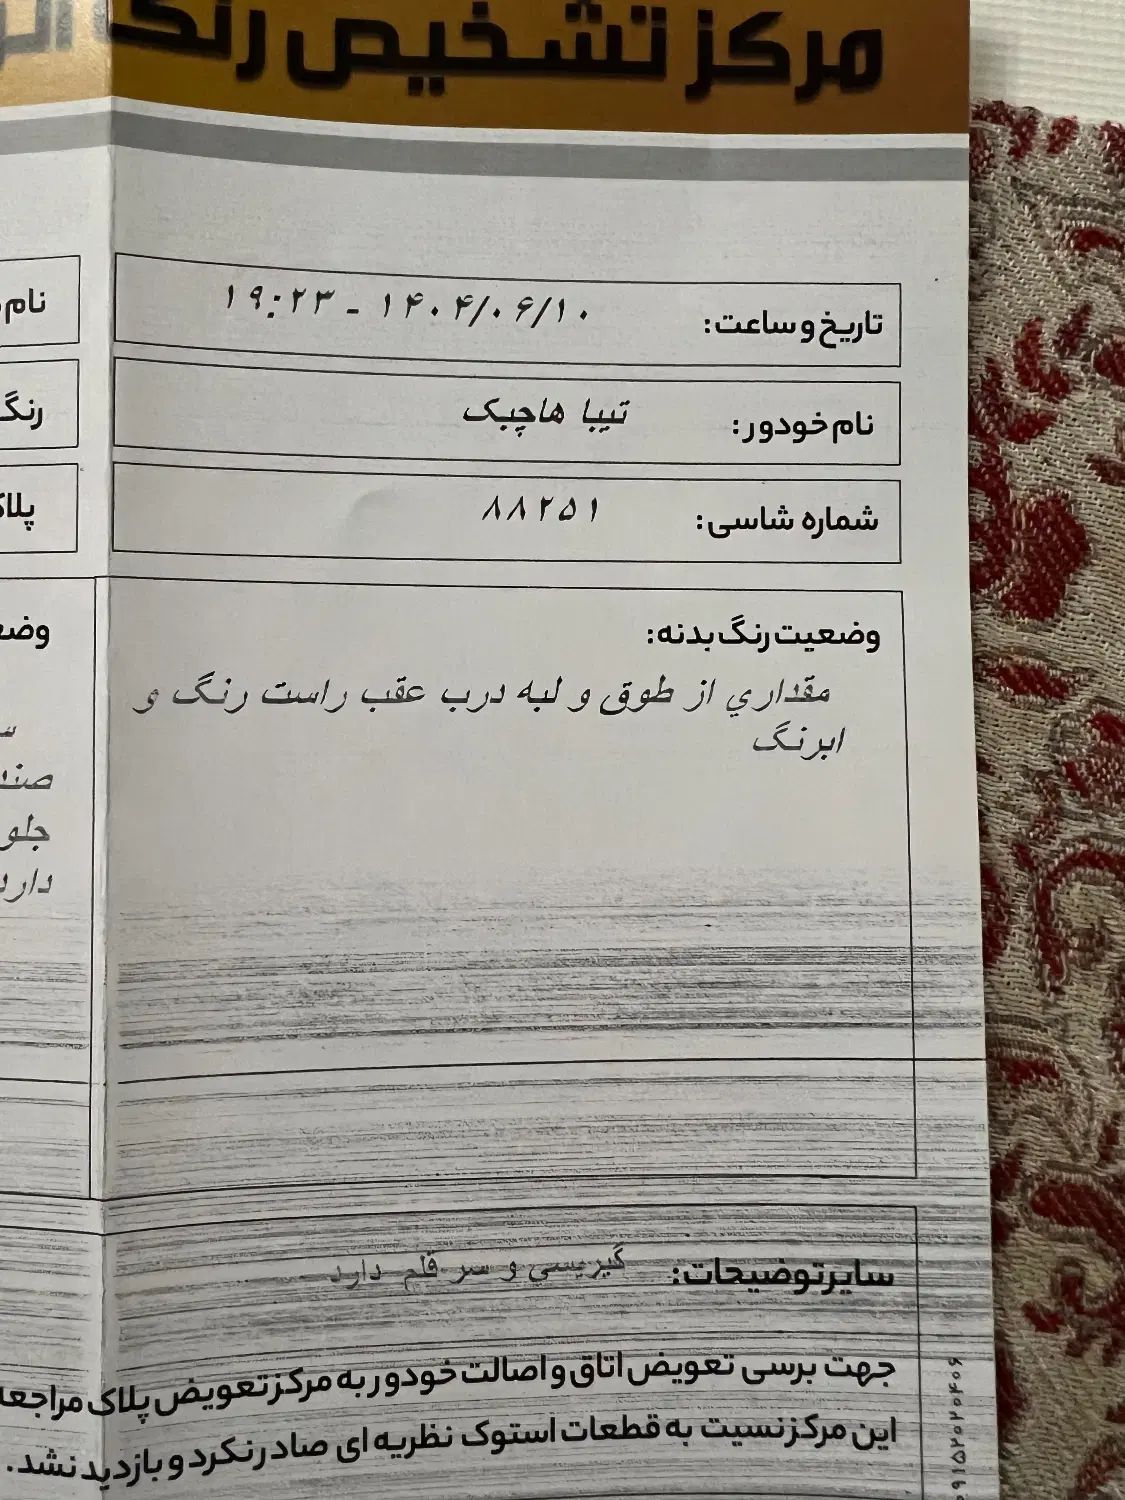 مرکز تشخیص رنگ
تاریخ و ساعت: ۱۴۰۴/۰۶/۱۰ - ۱۹:۲۳
نام خودور: تیبا هاچبک
شماره شاسی: ۸۸۲۵۱
وضعیت رنگ بدنه:
مقداري از طوق و لبه درب عقب راست رنگ و
ابرنگ
سایر توضیحات: گیریسی و سر قلم دارد
جهت برسی تعویض اتاق و اصالت خودور به مرکز تعویض پلاک
این مرکز نسیت به قطعات استوک نظریه ای صادر نکرد و بازدید نشد.
نام
رنگ
جلو
دارد